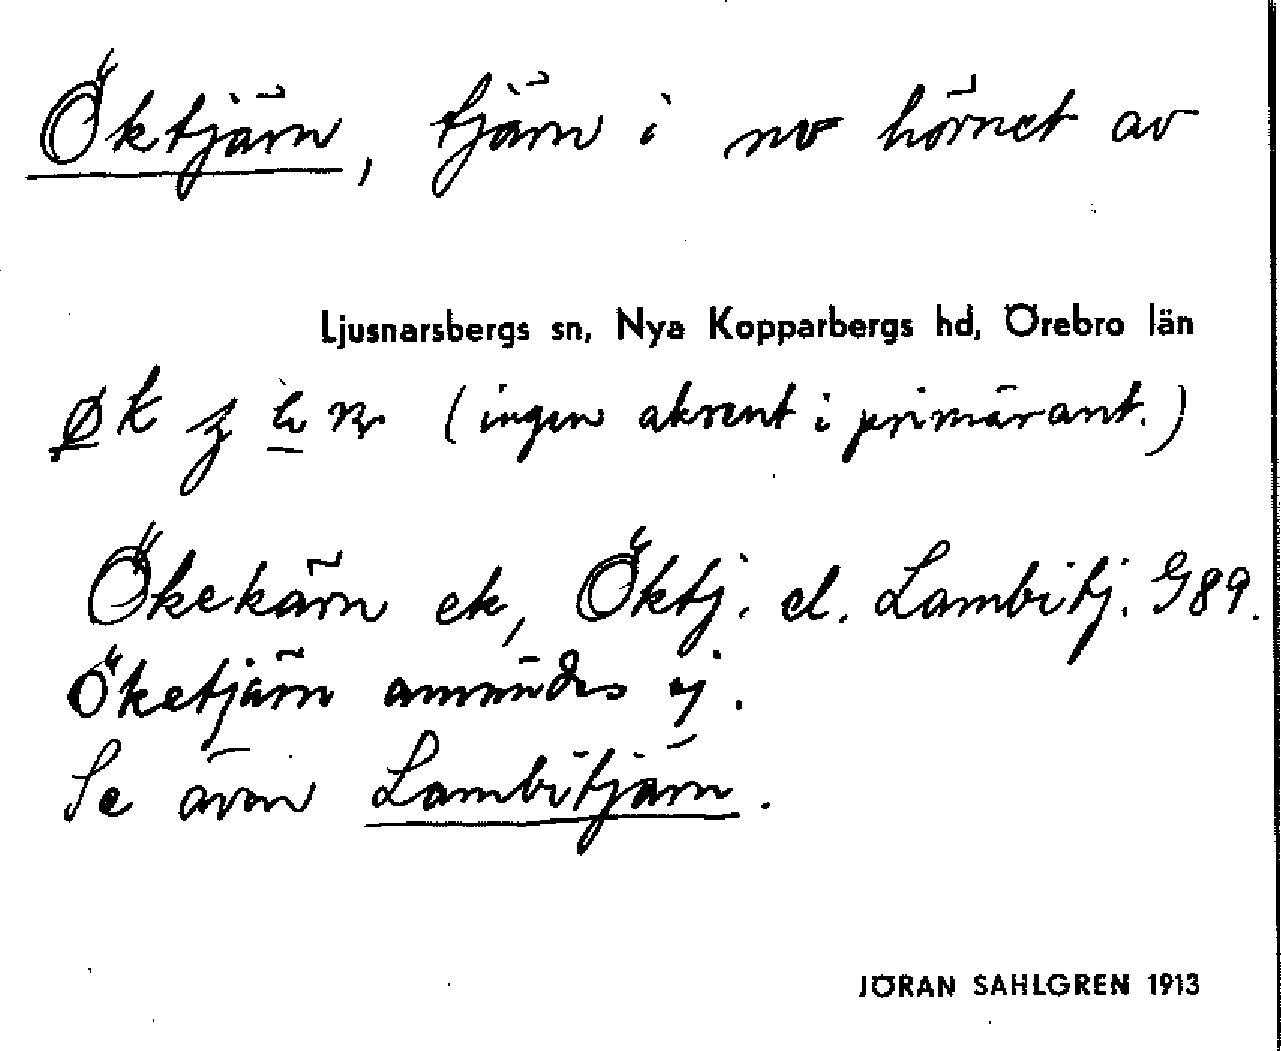 Öktjärn, tjärn i nv hörnet av
Ljusnarsbergs sn, Nya Kopparbergs hd, Örebro län
(ingen aksent i primärant.)
Ökekärn ek, Öktj. el. Lambitj. G89.
Öketjärn användes ej.
Se även Lambitjärn.
JÖRAN SAHLGREN 1913